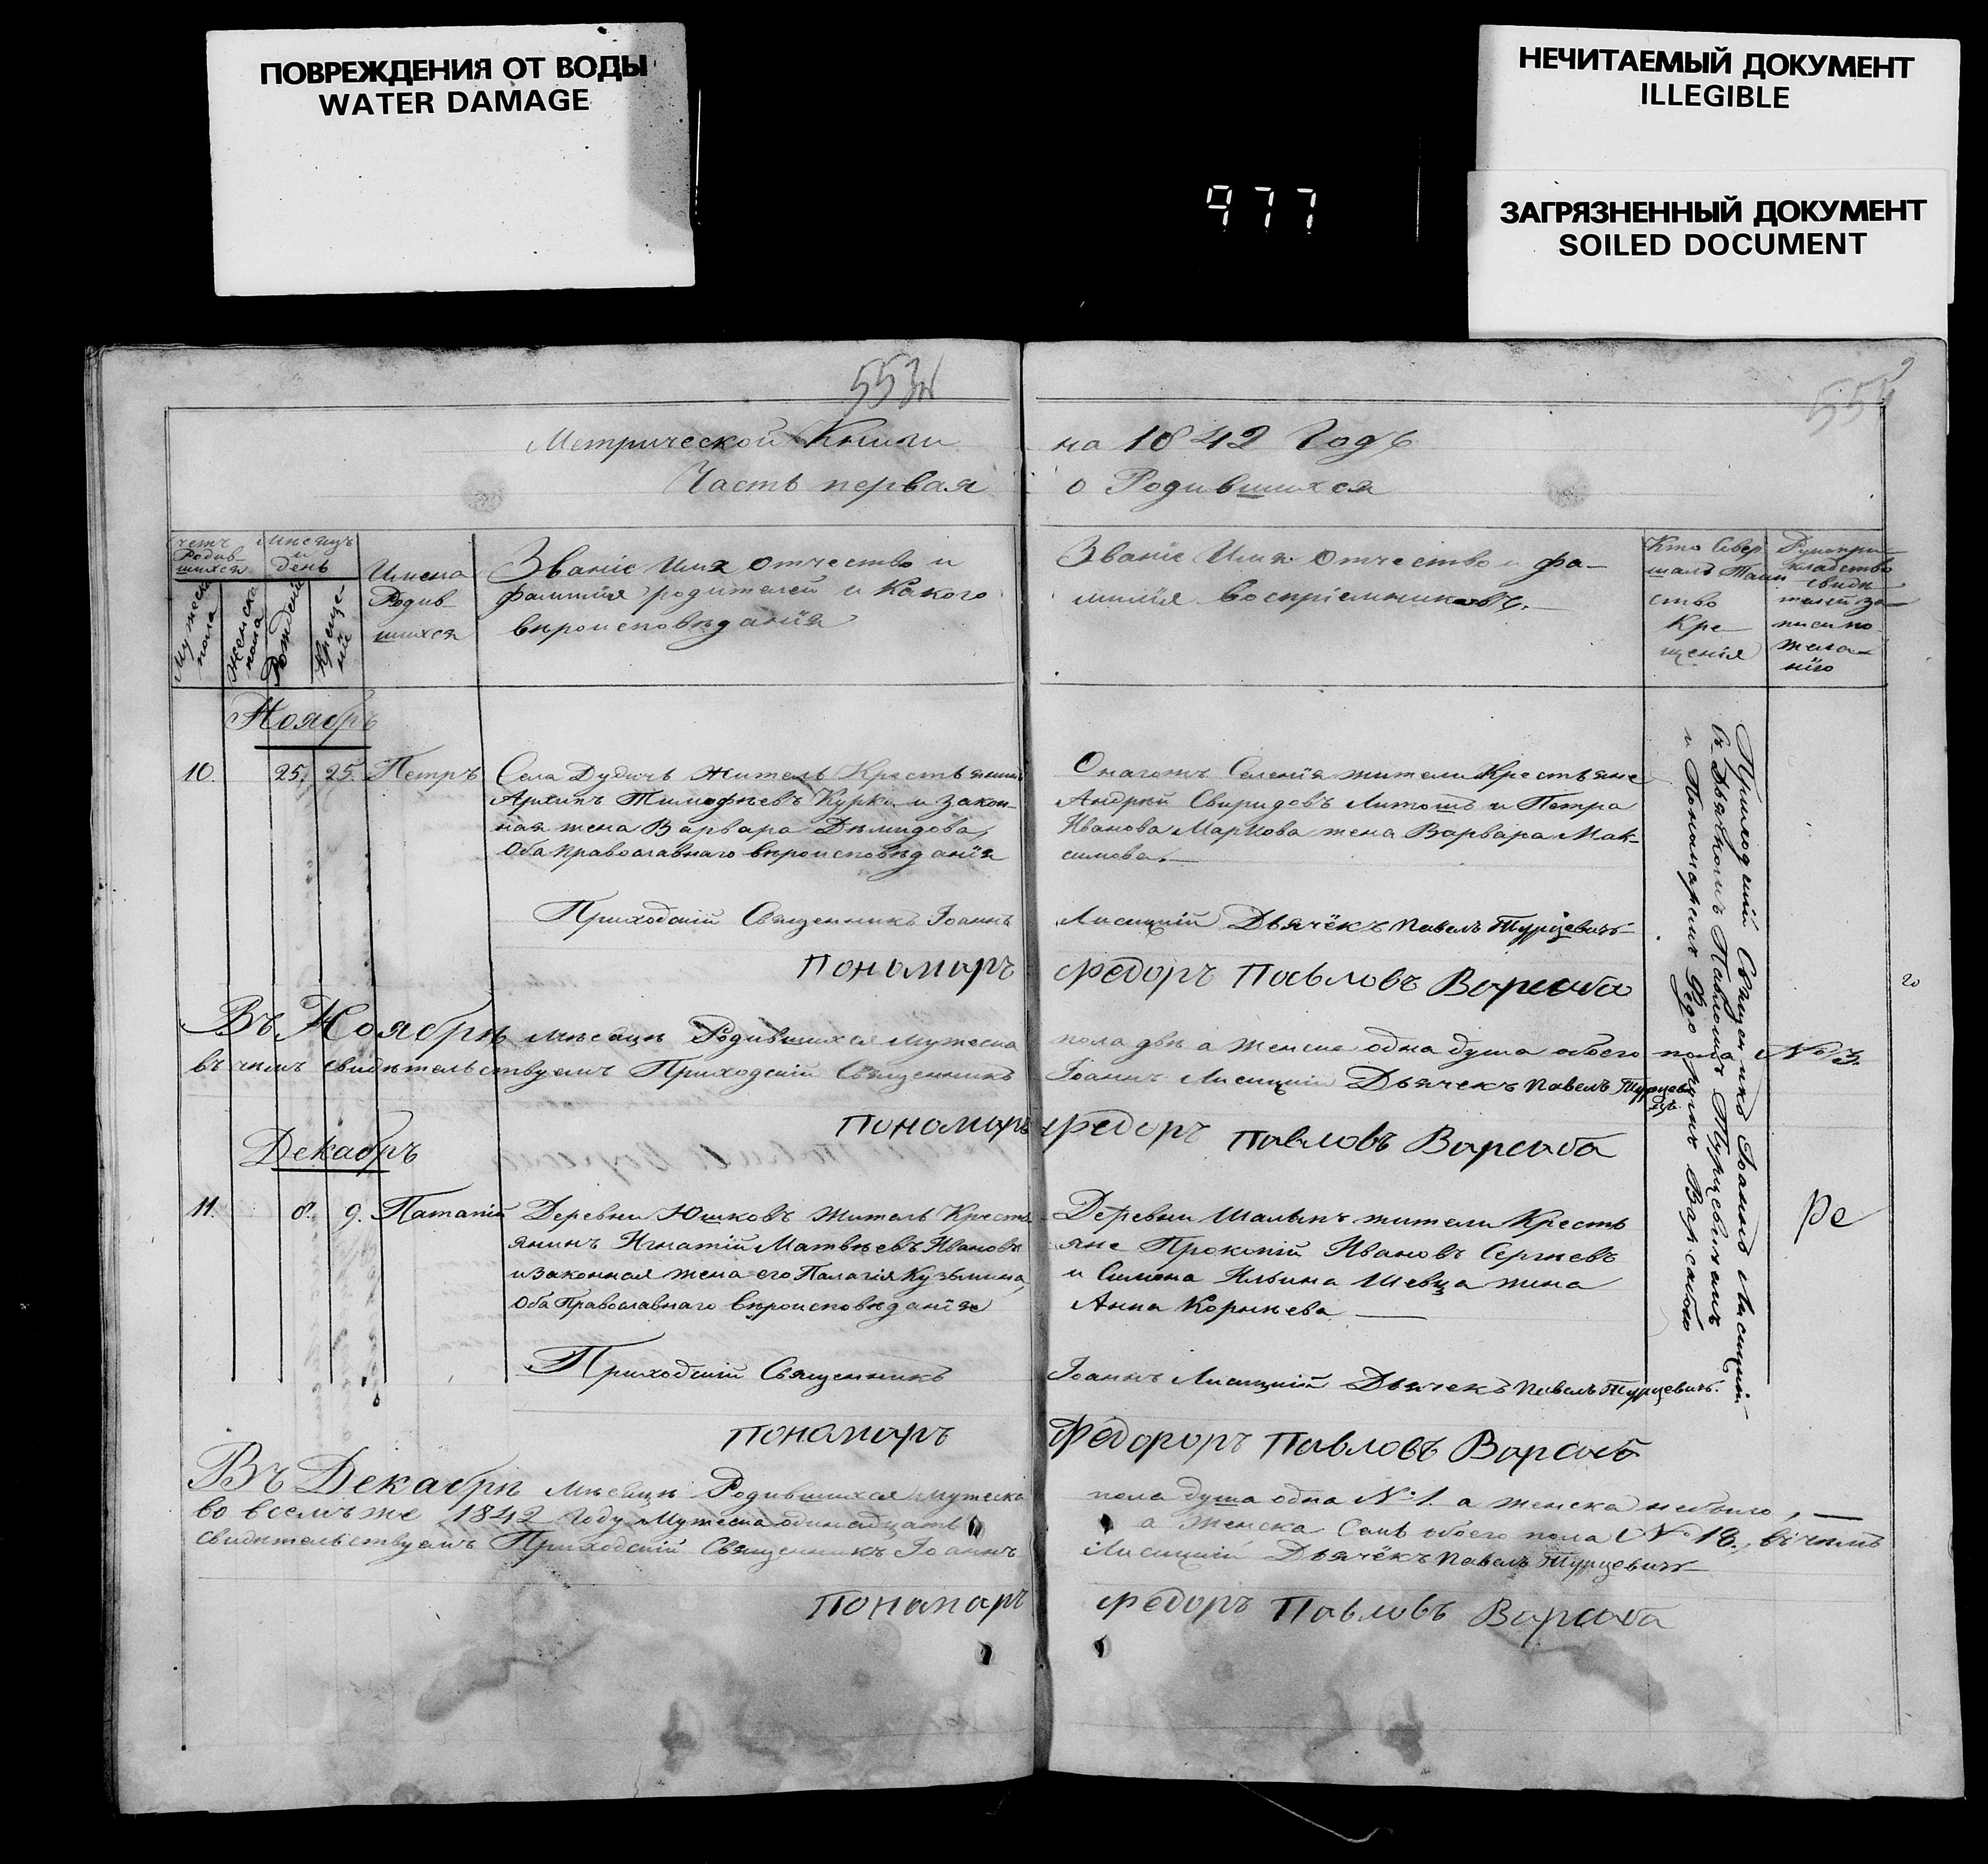 ПОВРЕЖДЕНИЯ ОТ ВОДЫ
WATER DAMAGE
НЕЧИТАЕМЫЙ ДОКУМЕНТ
ILLEGIBLE
977
ЗАГРЯЗНЕННЫЙ ДОКУМЕНТ
SOILED DOCUMENT
553
554
Метрической Книги на 1842 Годъ
Часть первая о Родившихся
Счетъ Родившихся
Мужеска пола
Женска пола
Мѣсяцъ и день
Рожденія
Крещенія
Имена
Родив-
шихся
Званіе Имя Отчество и
фамилія родителей и Какого
вѣроисповѣданія
Званіе Имя Отчество и фа-
милія воспріемниковъ.
Кто Совер
шалъ Таин
ство
Кре-
щенія
Рукопри-
кладство
свидѣ
телей за-
писи по
жела-
нію
Ноябрь
10. 25. 25. Петръ
Села Дудичь житель Крестьянинъ
Архипъ Тимофѣевъ Курка и закон-
ная жена Варвара Демидова,
Оба православнаго вѣроисповѣданія
Онагожъ Селенія жители Крестьяне
Андрей Свиридовъ Литошъ и Петра
Иванова Маркова жена Варвара Мак-
симова.
Приходскій Священникъ Іоаннъ Лисицкій Дьячёкъ Павелъ Турцевичъ
Пономарь Федоръ Павловъ Варсаба
Въ Ноябрѣ Мѣсяцѣ Родившихся Мужеска пола двѣ а женска одна душа обоего пола № 3.
въ чемъ свидѣтельствуемъ Приходскій Священникъ Іоаннъ Лисицкій Дьячекъ Павелъ Турцеви
чъ.
Пономарь Федоръ Павловъ Варсаба
Декабрь
11. 8. 9. Патапій
Деревни Юшковъ житель Кресть-
янинъ Игнатій Матвѣевъ Ивановъ
и законная жена его Палагія Кузьмина,
Оба Православнаго вѣроисповѣданія
Деревни Шалыпъ жители Кресть
яне Прокопій Ивановъ Сергѣевъ
и Симона Ильина Шевца жена
Анна Корнѣева
Приходскій Священникъ Іоаннъ Лисицкій
съ Дьячкомъ Павломъ Турцевичемъ
и Пономаремъ Федоромъ Варсабою
Приходскій Священникъ Іоаннъ Лисицкій Дьячекъ Павелъ Турцевичъ.
Пономарь Федороръ Павловъ Варсаб
Въ Декабрѣ Мѣсяцѣ Родившихся мужеска пола душа одна № 1. а женска небыло,
во всемъ же 1842 году Мужеска одинадцать а Женска Семь обоего пола № 18. въ чемъ
свидѣтельствуемъ Приходскій Священникъ Іоаннъ Лисицкій Дьячёкъ Павелъ Турцевичъ
Пономарь Федоръ Павловъ Варсаба